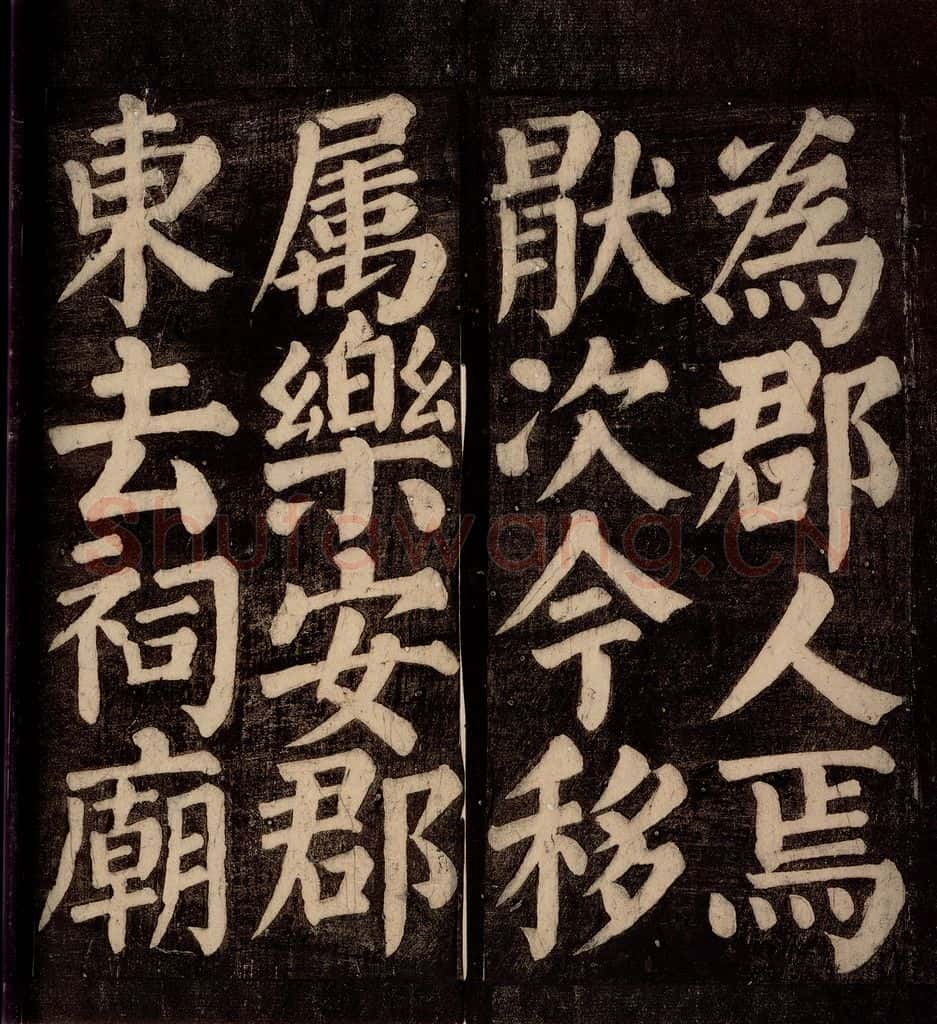 為郡人焉
猒次今移
属樂安郡
東去祠廟
Shufawang.CN